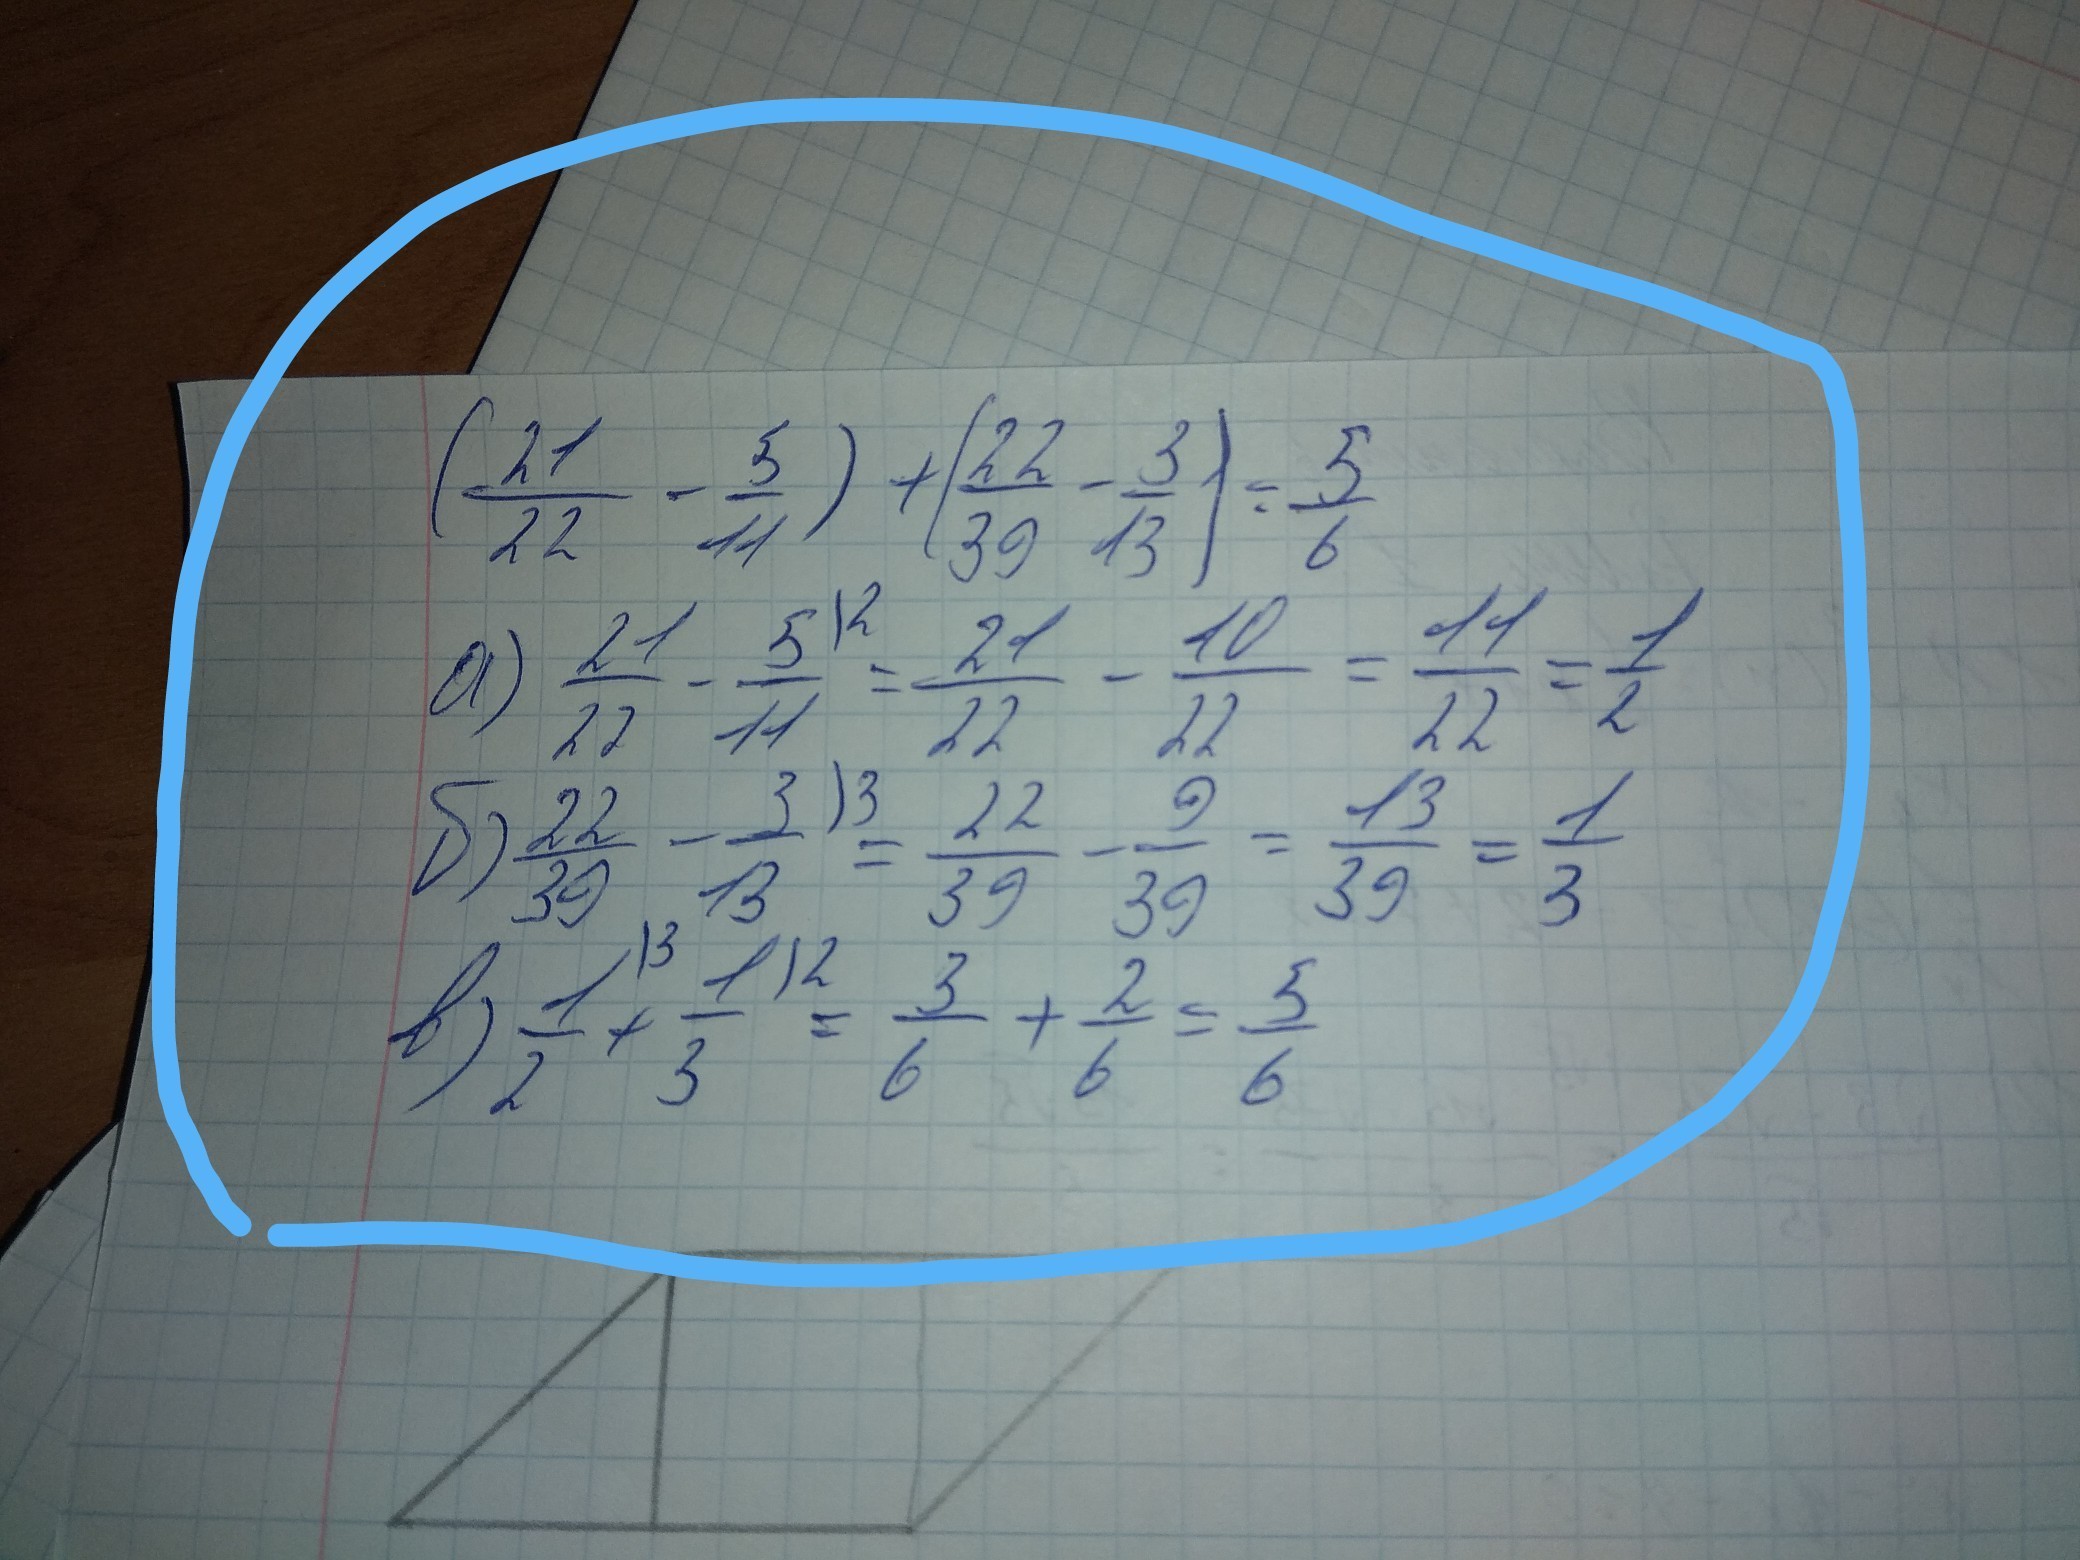 (21/22 - 5/11) + (22/39 - 3/13) = 5/6
а) 21/22 - 5/11 )2 = 21/22 - 10/22 = 11/22 = 1/2
б) 22/39 - 3/13 )3 = 22/39 - 9/39 = 13/39 = 1/3
в) 1/2 )3 + 1/3 )2 = 3/6 + 2/6 = 5/6